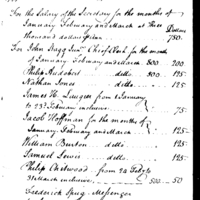 For the Salary of the Secretary for the months of
January February and March at three Dollars
thousand dollars p. ann 750.
For John Stagg Junr. Chief Clerk for the months
of January February and March 800 200.
Philip Audebert ditto 500 125
Nathan Jones ditto 125.
James H. from 1 January
to 23d February inclusive 75.
Jacob Hoffman for the months of
January February and March 125.
William Burton ditto 125.
Samuel Lewis ditto 125.
Philip Chetwood from 24 Feby to
31 March inclusive 500 50
Frederick Spug Messenger